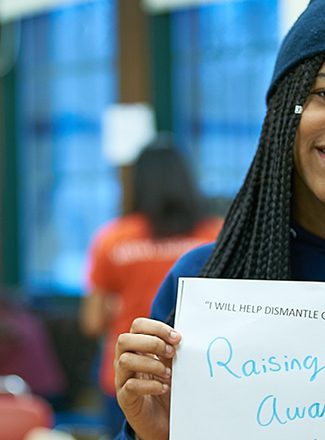 "I WILL HELP DISMANTLE
Raising